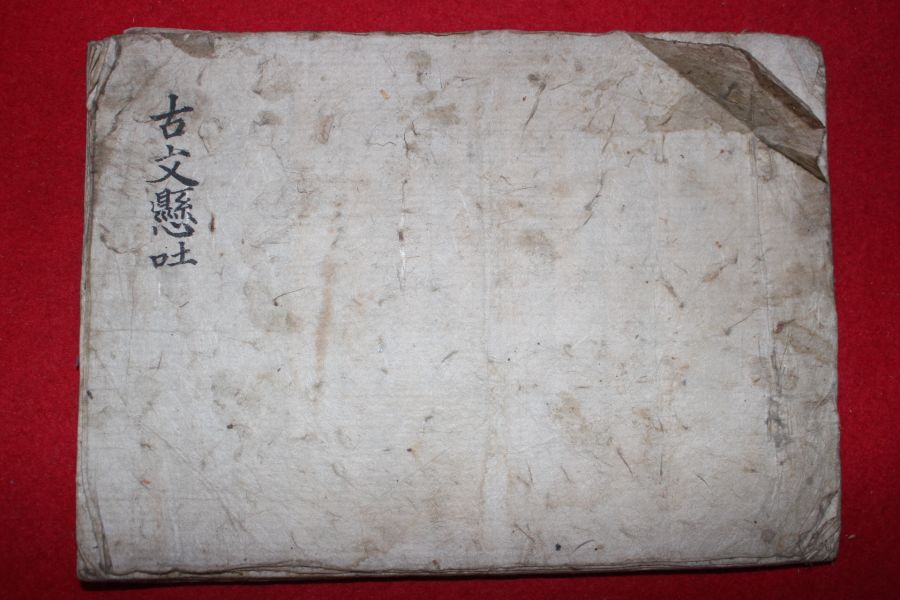 古文懸吐